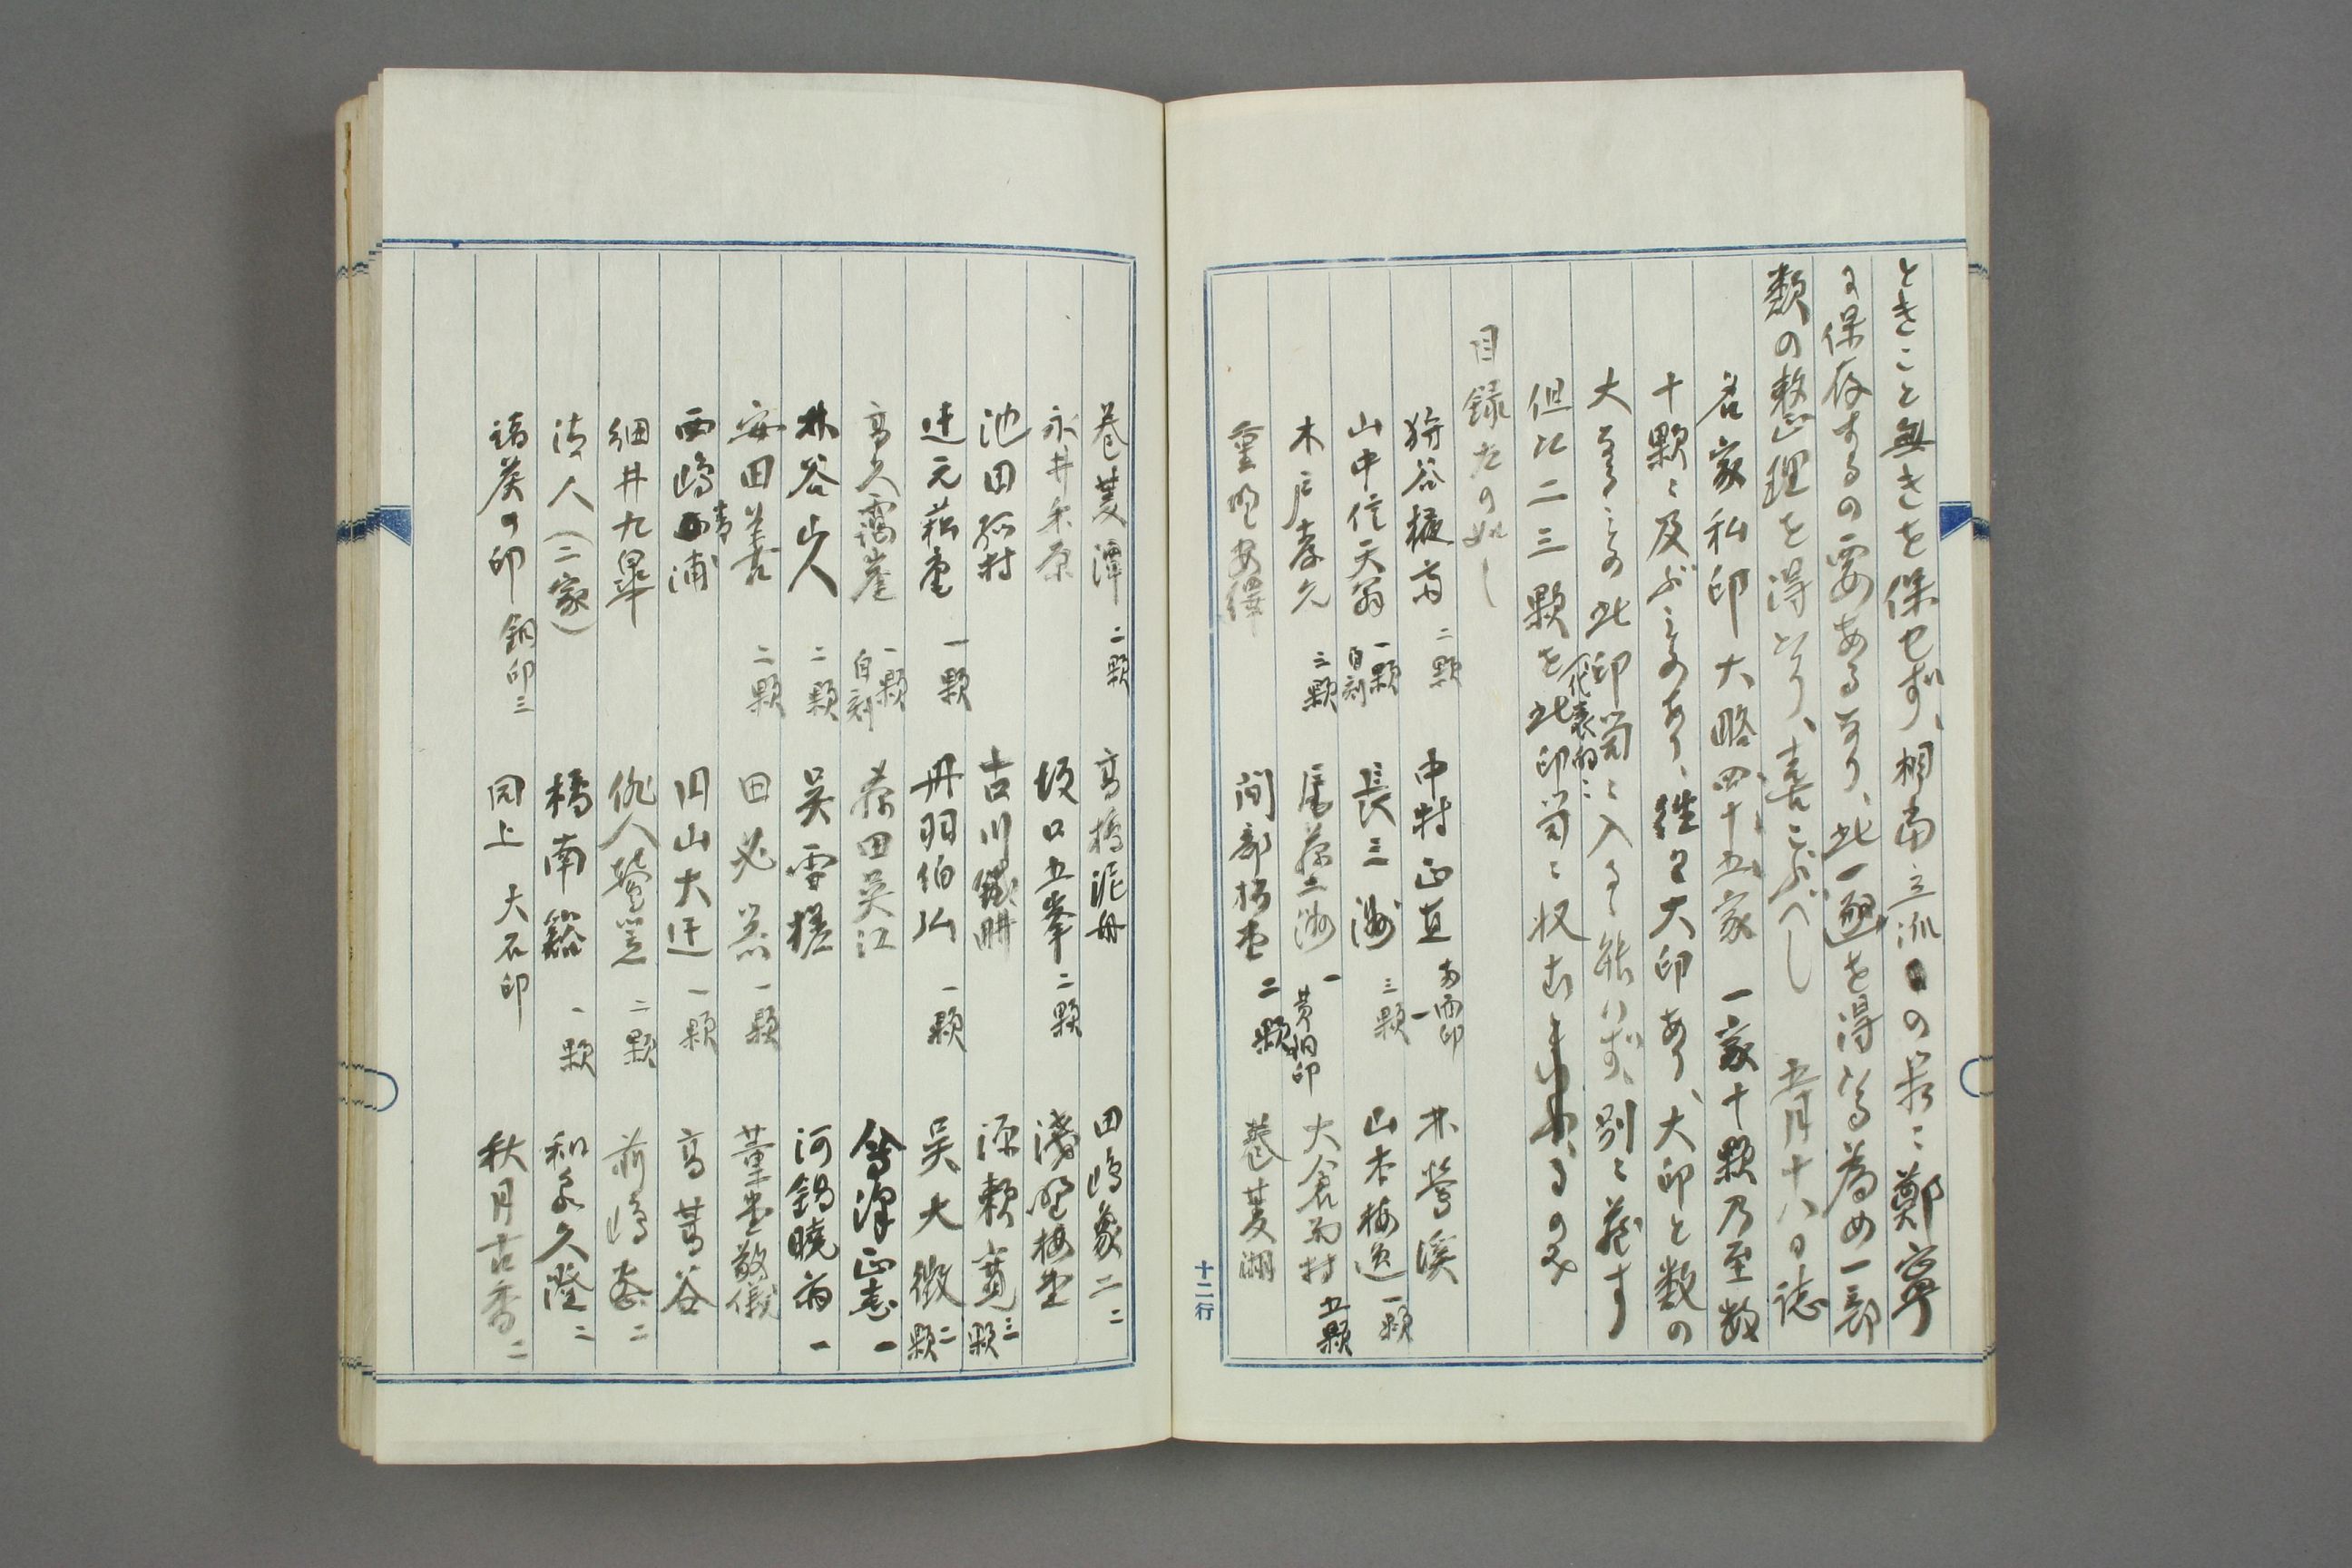 ときこと無きを保せず、相当立派の器に鄭寧
に保存するの要あるなり、此一函を得たる為め一部
類の整理を得たり、喜こぶべし 五月十八日誌
名家私印大略四十五家 一家十顆乃至数
十顆に及ぶものあり、往々大印あり、大印と数の
大なるもの此印笥に入る能はず、別に蔵す
但し二三顆を代表的に此印笥に収むるのみ
目録左の如し
狩谷棭斎 二顆 中村正直 両面印一 林鶯溪
山中信天翁 一顆自刻 長三洲 三顆 山本梅逸 一顆
木戸孝允 三顆 尾藤二洲 一 黄銅印 大倉雨村 五顆
重野安繹 間部松堂 二顆 巻菱湖
十二行
巻菱潭 二顆 高橋泥舟 田嶋象二 二
永井禾原 坂口五峯 二顆 浅野梅堂
池田孤村 古川鉄畊 源頼寛 三顆
辻元崧庵 一顆 丹羽伯弘 一顆 呉大徴 二顆
高久靄崖 一顆自刻 藤田呉江 会澤正志 一
林谷山人 二顆 呉雪槎 河鍋暁斎 一
安田善 二顆 田必 一顆 董堂敬儀
西嶋青浦 円山大迂 一顆 高芙谷
細井九皐 俳人鶯笠 二顆 前嶋密 二
清人(二家) 橘南谿 一顆 和泉久澄 二
諸葵の印 銅印三 同上 大石印 秋月古香 二